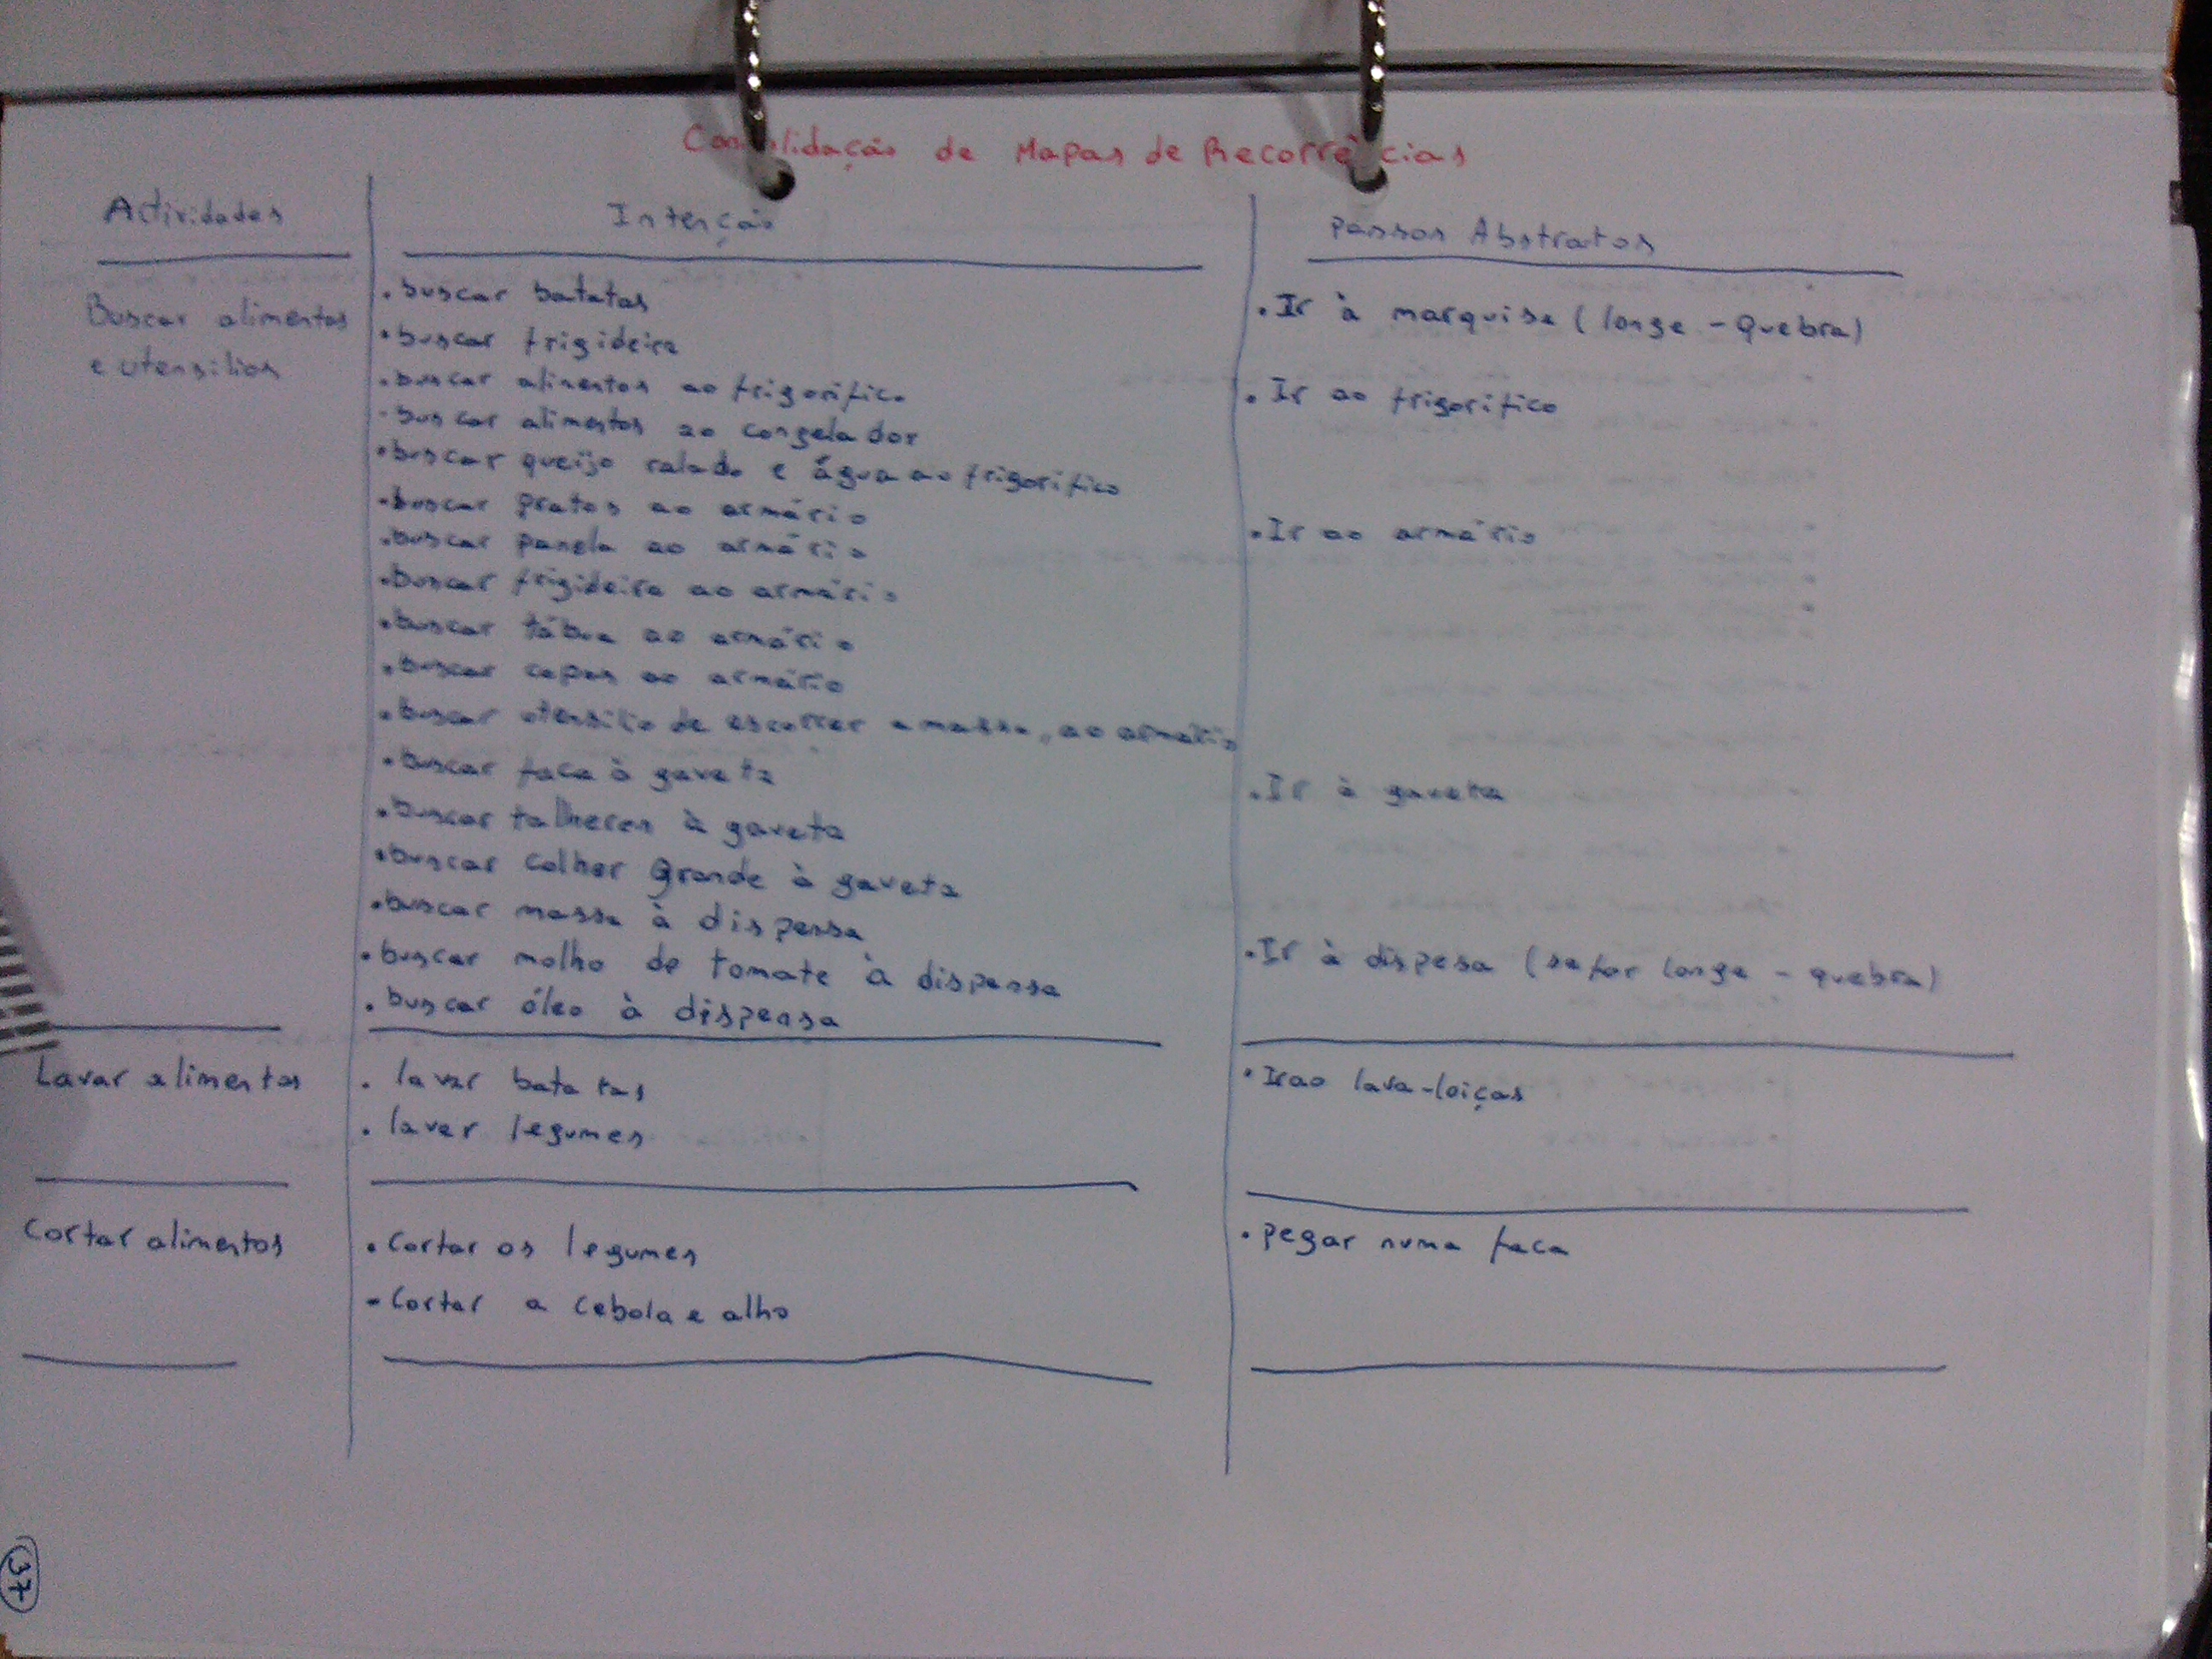 Consolidação de Mapas de Recorrências
Actividades
Intenção
Passos Abstratos
Buscar alimentos
e utensilios
. buscar batatas
. buscar frigideira
. buscar alimentos ao frigorífico
. buscar alimentos ao congelador
. buscar queijo ralado e água ao frigorífico
. buscar pratos ao armário
. buscar panela ao armário
. buscar frigideira ao armário
. buscar tábua ao armário
. buscar copos ao armário
. buscar utensilio de escorrer a massa, ao armário
. buscar faca à gaveta
. buscar talheres à gaveta
. buscar colher grande à gaveta
. buscar massa à dispensa
. buscar molho de tomate à dispensa
. buscar óleo à dispensa
. Ir à marquise (longe - Quebra)
. Ir ao frigorífico
. Ir ao armário
. Ir à gaveta
. Ir à dispesa (se for longe - quebra)
Lavar alimentos
. lavar batatas
. lavar legumes
. Ir ao lava-loiças
Cortar alimentos
. Cortar os legumes
- Cortar a cebola e alho
. Pegar numa faca
37